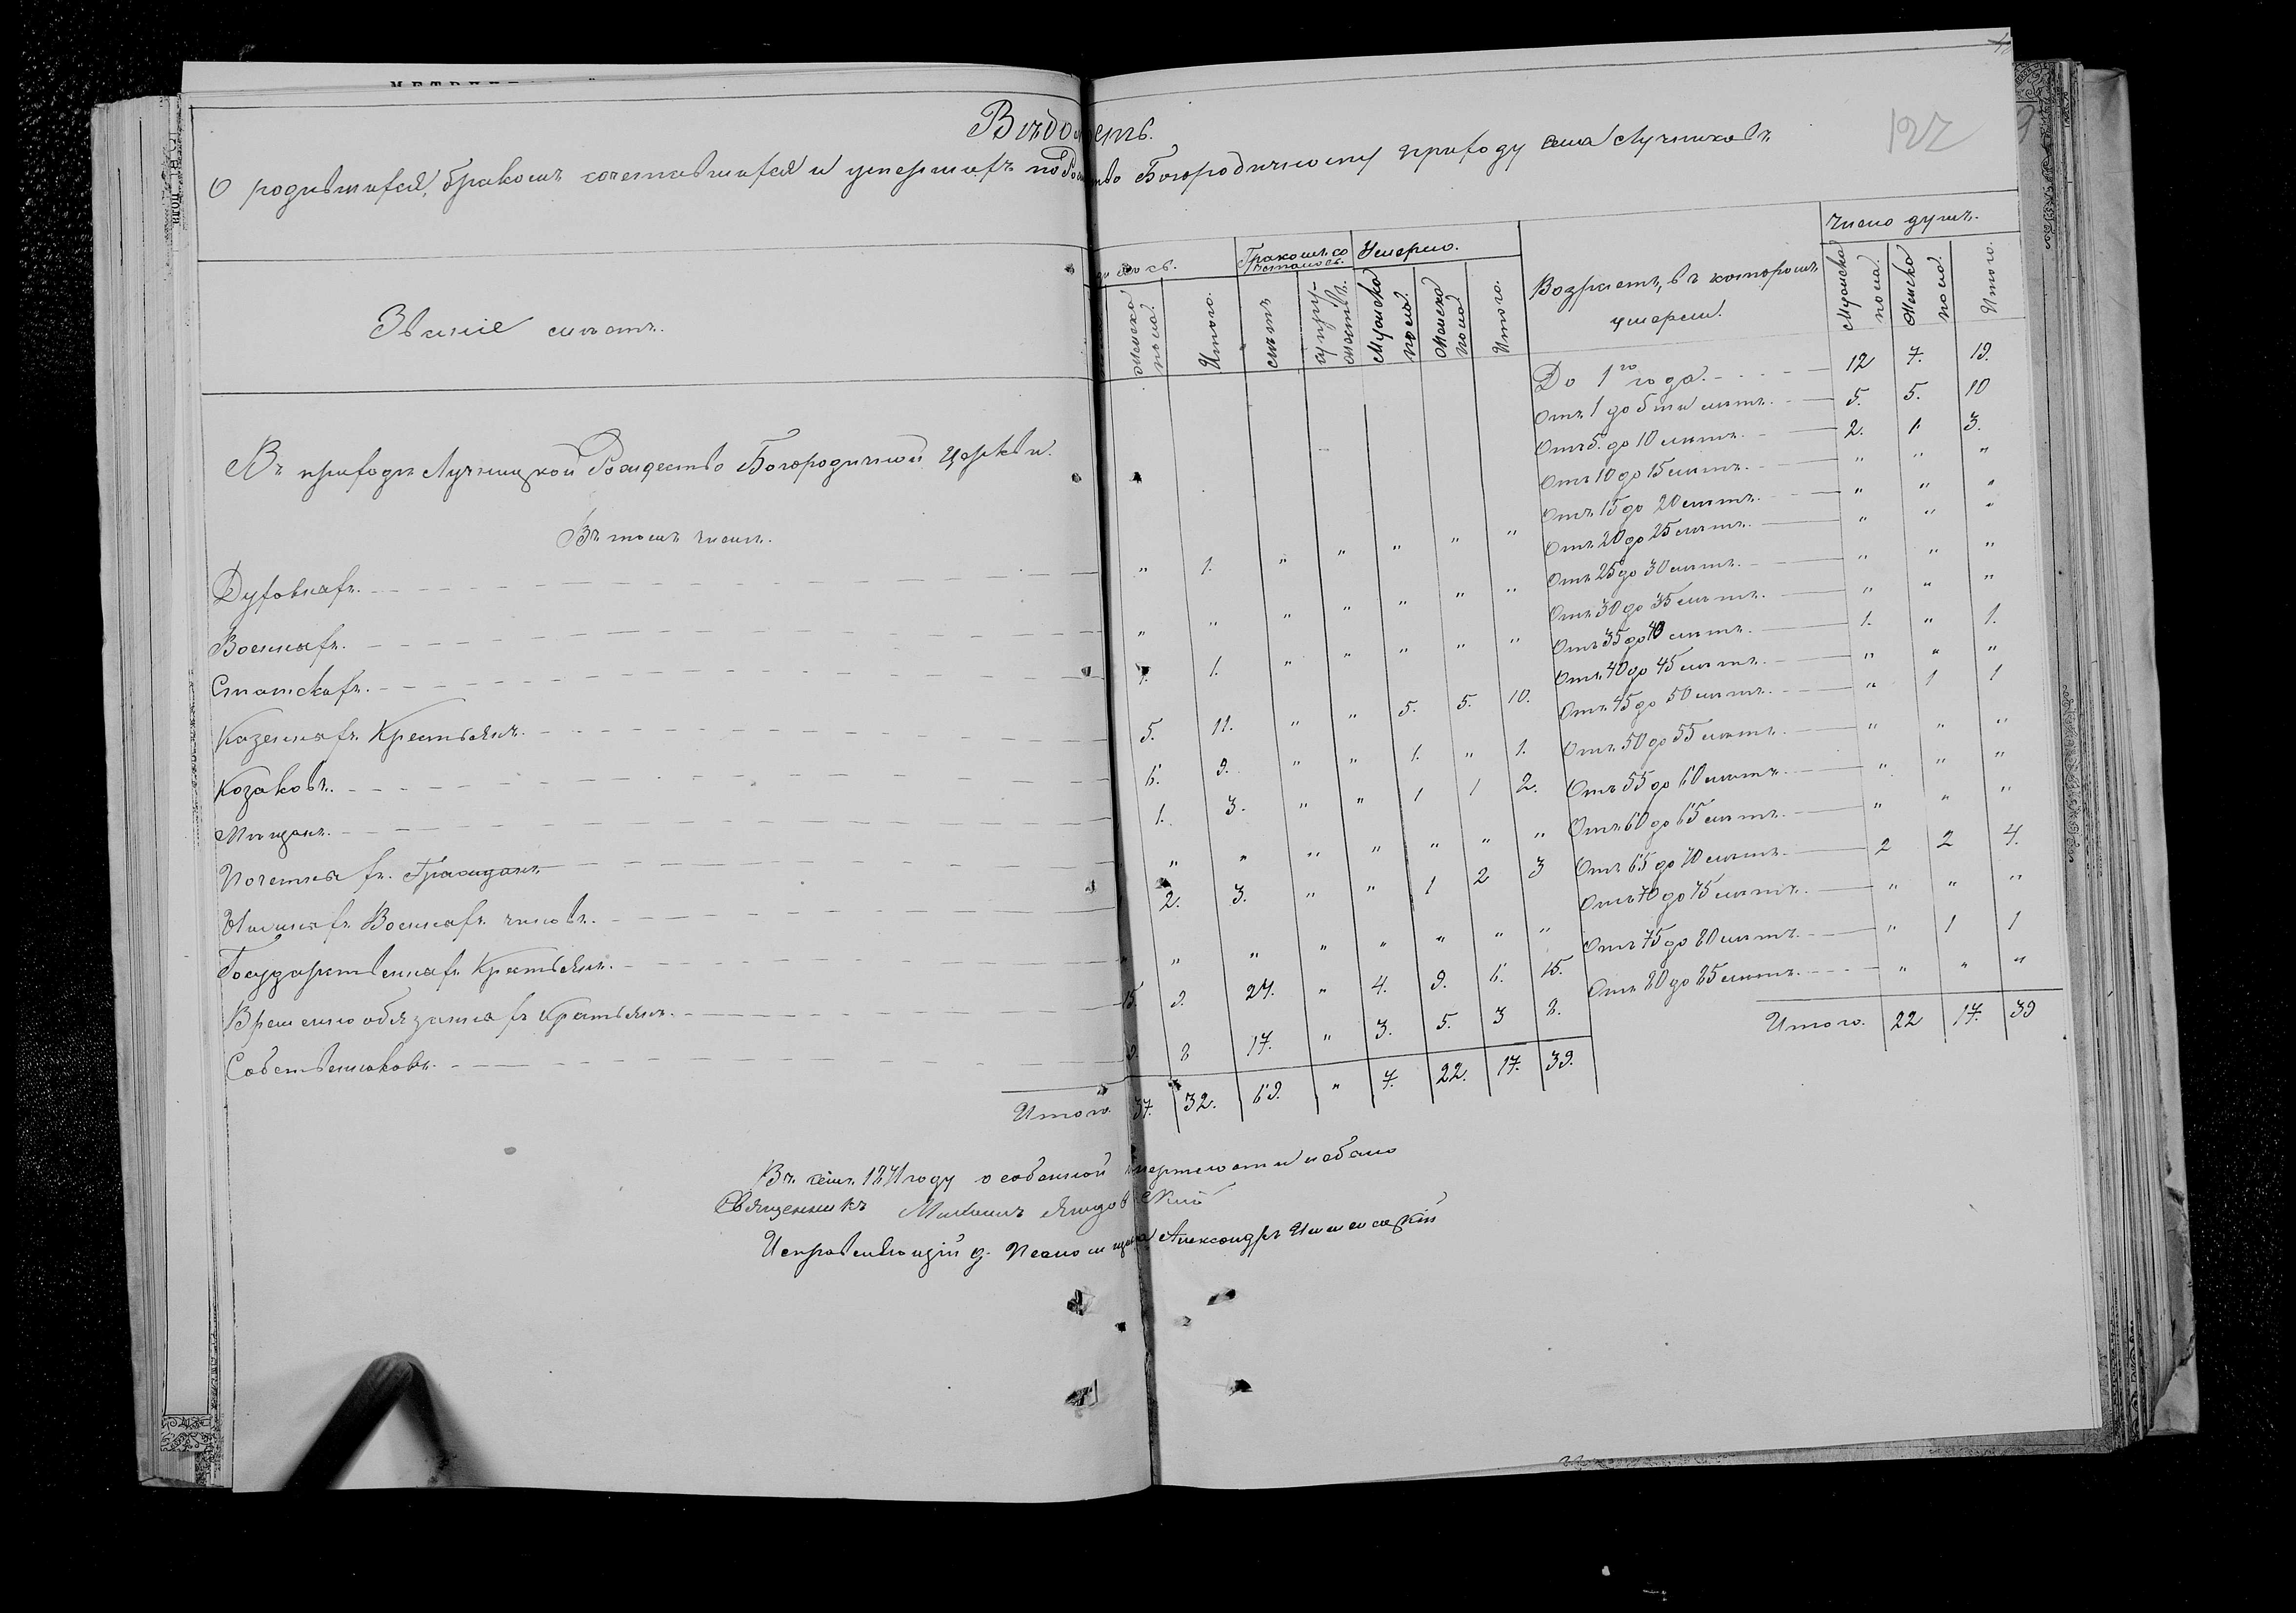 Вѣдомость.
О родившихся, бракомъ сочетавшихся и умершихъ по Рождество Богородичному приходу села Лучниковъ
122
Званіе мѣстъ.
Женска пола.
Итого.
Бракомъ сочеталось.
супружествъ.
Умерло.
Мужска пола.
Женска пола.
Итого.
Возрастъ, въ которомъ умерли.
Число душъ.
Мужска пола.
Женска пола.
Итого.
Въ приходѣ Лучницкой Рождество Богородичной Церкви.
Въ томъ числѣ.
Духовныхъ. " 1. " " " " "
Военныхъ. " " " " " " "
Статскихъ. 1. 1. " " " " "
Казенныхъ Крестьянъ. 5. 11. " " 5. 5. 10.
Козаковъ. 6. 9. " " 1. " 1.
Мѣщанъ. 1. 3. " " 1 1 2.
Почетныхъ Гражданъ " " " " " " "
Нижнихъ Военныхъ чиновъ. 2. 3. " " 1 2 3
Государственныхъ Крестьянъ. " " " " " " " "
Временно обязанныхъ Крестьянъ. 15 9. 24. " 4. 9. 6. 15.
Собственниковъ. 9. 8 17. " 3. 5. 3 8.
Итого. 37. 32. 69. " 7. 22. 17. 39.
До 1го года. 12 7. 19.
Отъ 1 до 5ти лѣтъ. 5. 5. 10
Отъ 5. до 10 лѣтъ. 2. 1. 3.
Отъ 10 до 15 лѣтъ. " " "
Отъ 15 до 20 лѣтъ. " " "
Отъ 20 до 25 лѣтъ. " " "
Отъ 25 до 30 лѣтъ. " " "
Отъ 30 до 35 лѣтъ. " " "
Отъ 35 до 40 лѣтъ. 1. " 1.
Отъ 40 до 45 лѣтъ. " " "
Отъ 45 до 50 лѣтъ. " 1 1
Отъ 50 до 55 лѣтъ. " " "
Отъ 55 до 60 лѣтъ. " " "
Отъ 60 до 65 лѣтъ. " " "
Отъ 65 до 70 лѣтъ. 2 2 4.
Отъ 70 до 75 лѣтъ. " " "
Отъ 75 до 80 лѣтъ. " 1 1
Отъ 80 до 85 лѣтъ. " " "
Итого. 22 17. 39
Въ семъ 1871 году особенной смертности небыло
Священникъ Михаилъ
Исправляющій д. Псаломщика Александръ